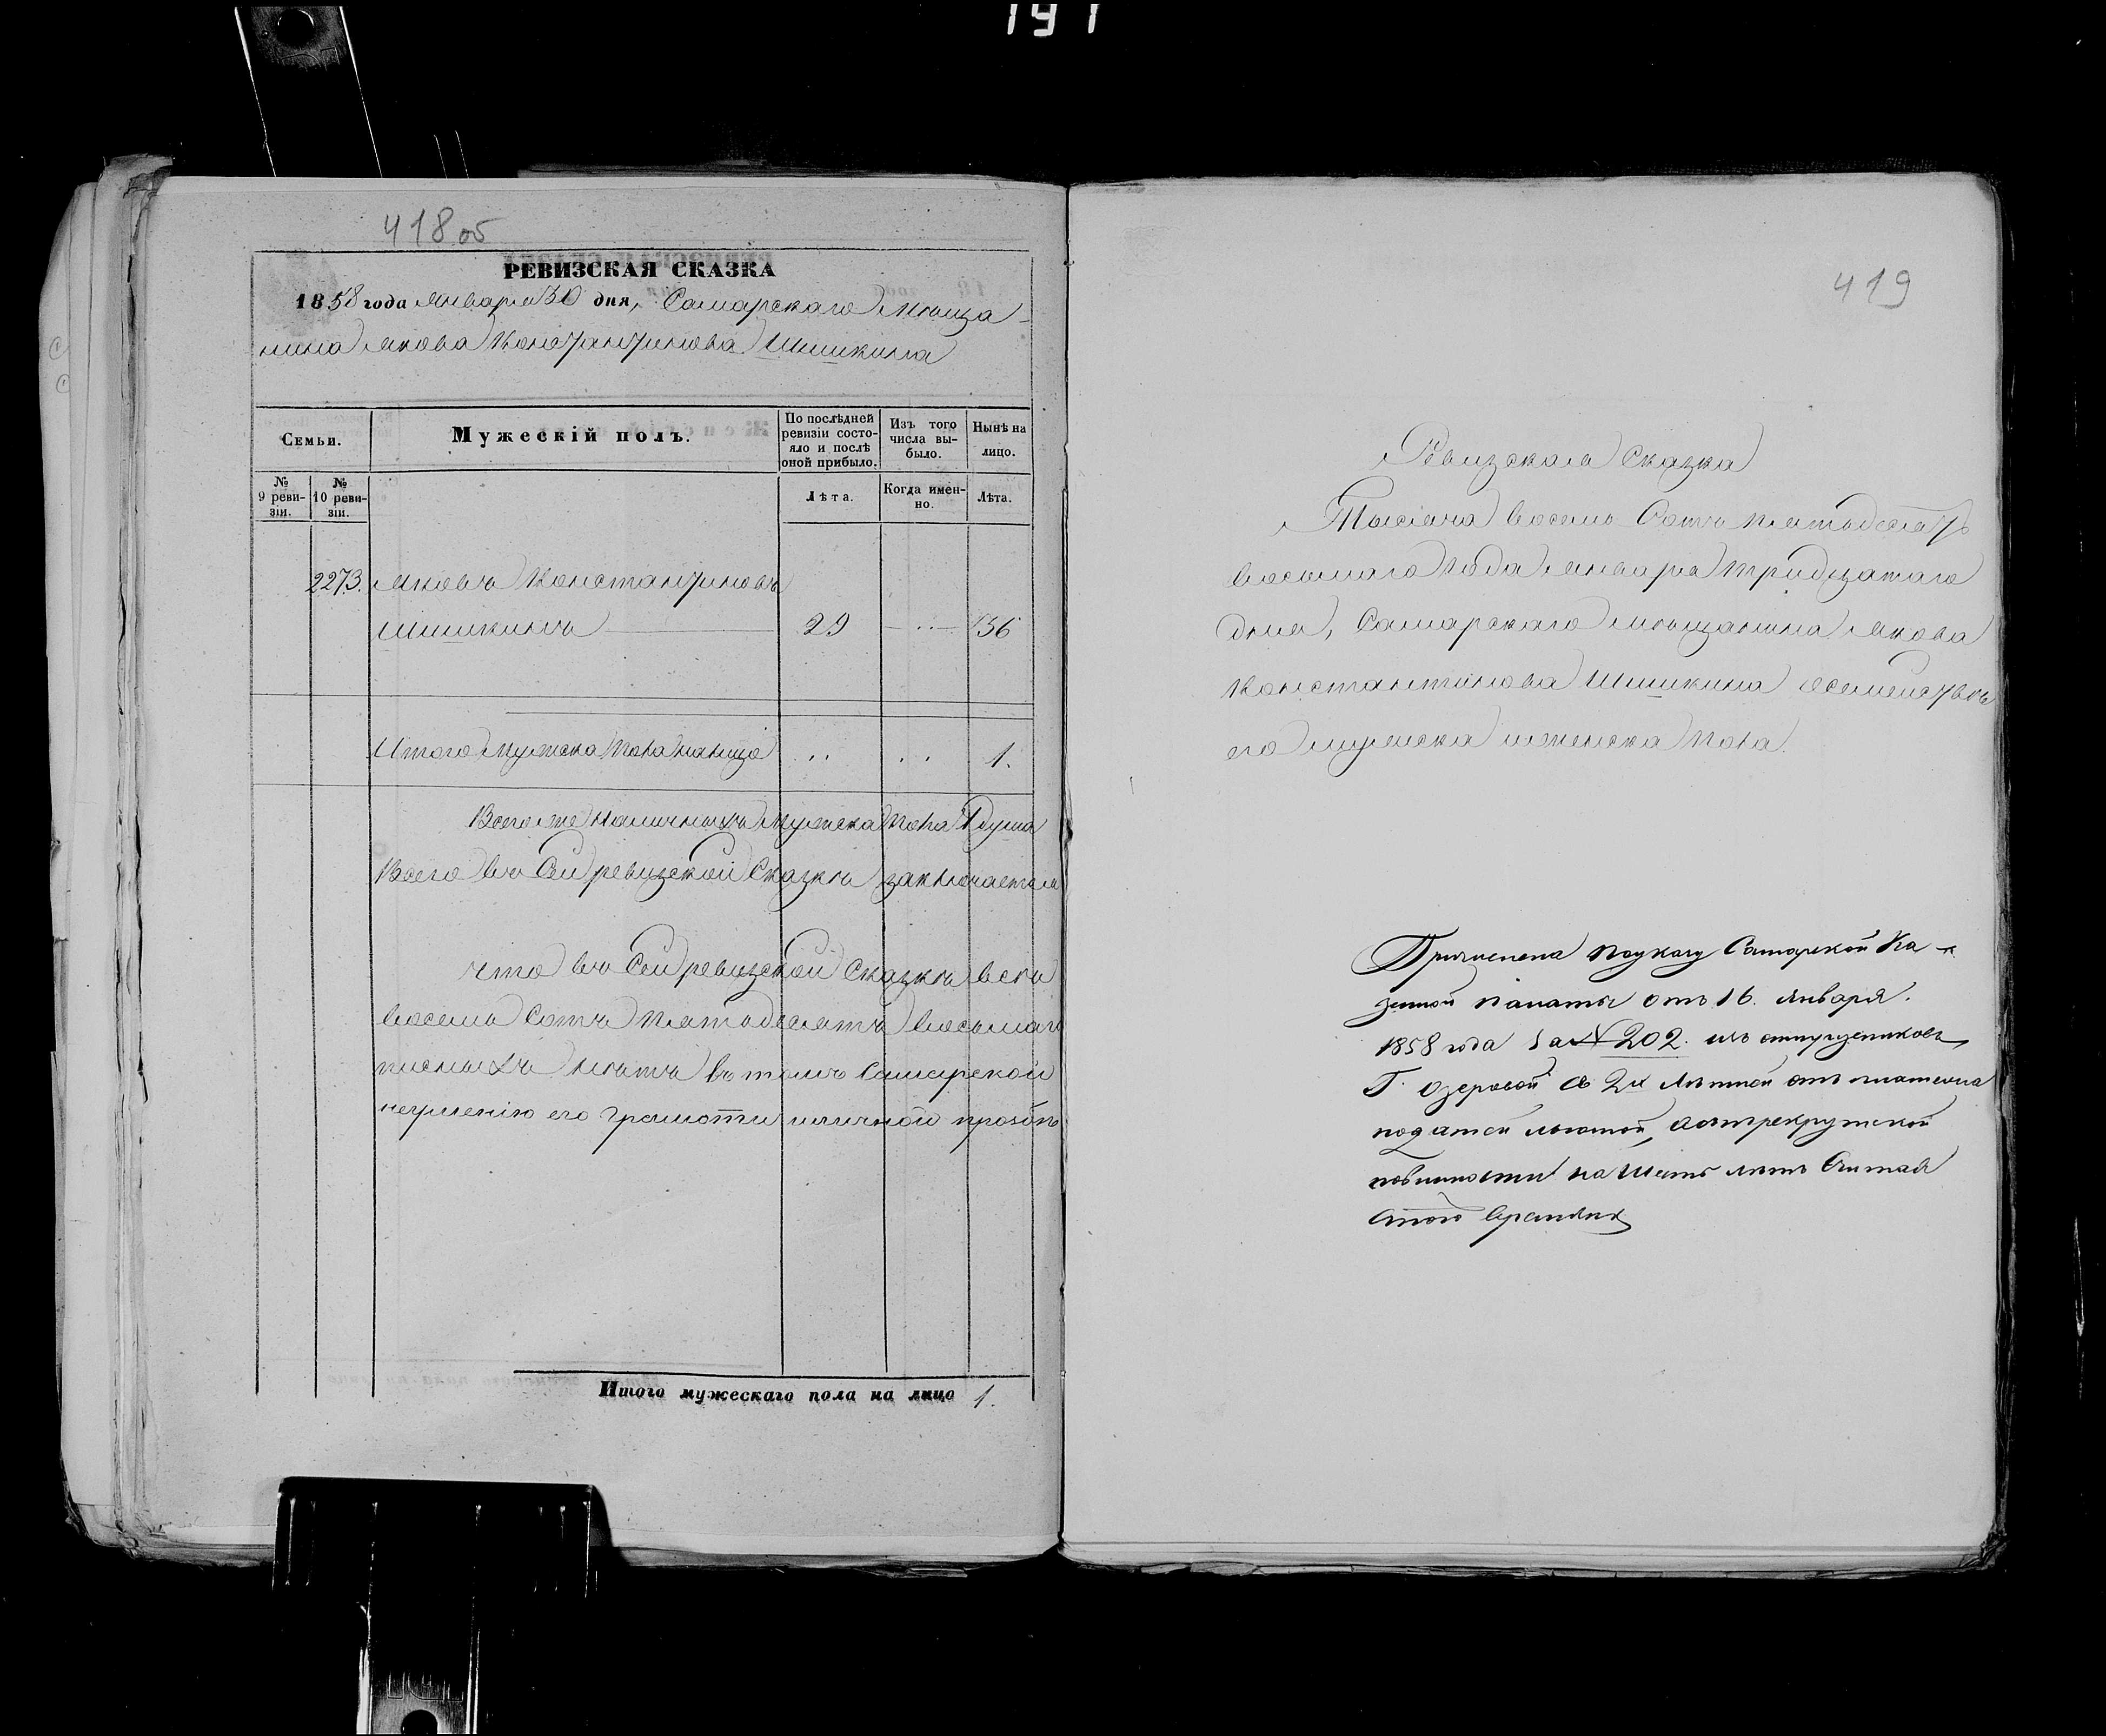 191
418 об
РЕВИЗСКАЯ СКАЗКА
1858 года Января 30 дня, Самарскаго мѣща-
нина Якова Константинова Шишкина
Семьи.
Мужескій полъ.
По послѣдней ревизіи состо-
яло и послѣ оной прибыло.
Изъ того числа вы-
было.
Нынѣ на лицо.
№ 9 реви-
зіи.
№ 10 реви-
зіи.
Лѣта.
Когда имен-
но.
Лѣта.
2273. Яковъ Константиновъ
Шишкинъ 29 36
Итого мужеска пола налицо 1.
Всего же наличныхъ мужеска пола 1 душа
Всего въ сей ревизской сказкѣ заключается
Что въ сей ревизской сказкѣ всѣ
восемь сотъ пятьдесятъ восьмаго
писныхъ лѣтъ въ томъ Самарской
неумению его грамоти и личной прозбѣ
Итого мужескаго пола на лицо 1.
419
Ревизская сказка
Тысяча восемь сотъ пятьдесятъ
восьмаго года января тридцатаго
дня, Самарскаго мѣщанина Якова
Константинова Шишкина о семействѣ
его мужеска и женска пола.
Причислена по указу Самарской Ка-
зенной палаты отъ 16. Января.
1858 года за № 202. изъ отпущенниковъ
Г. Озеровой съ 2х лѣтней отъ платежа
податей льготой, а отъ рекрутской
повинности на шесть лѣтъ считая
стого времяни